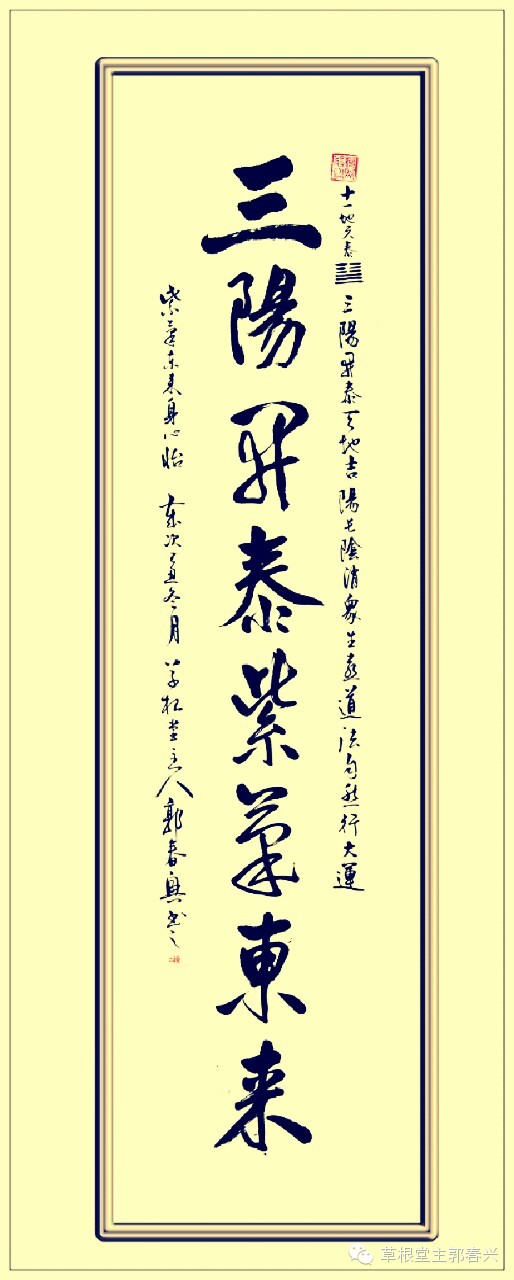 十一地天泰䷊三陽開泰天地吉陽長陰消眾生喜道法自然行大運
三陽開泰紫氣東來
紫氣東来身心怡 歲次 冬月 草根堂主人郭春興書之
草根堂主郭春兴